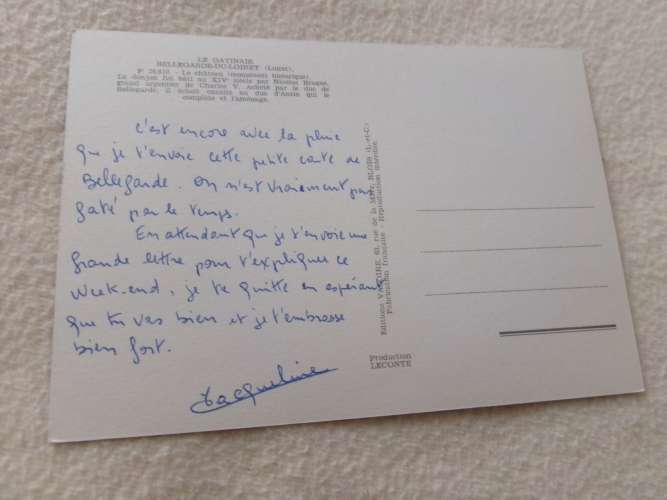 LE GATINAIS
BELLEGARDE-DU-LOIRET (Loiret)
Le château (monument historique)
Le donjon fut bâti au XIVe siècle par Nicolas Braque,
grand argentier de Charles V. Acheté par le duc de
Bellegarde, il échoit ensuite au duc d'Antin qui le
complète et l'aménage.
c'est encore avec la pluie
que je t'envoie cette petite carte de
Bellegarde. On n'est vraiment pas
gaté par le temps.
En attendant que je t'envoie une
grande lettre pour t'expliquer ce
Week-end, je te quitte en espérant
que tu vas bien et je t'embrasse
bien fort.
Jacqueline
Editions 61, rue de la BLOIS (L.-et-C.)
Fabrication française - Reproduction interdite
Production
LECONTE